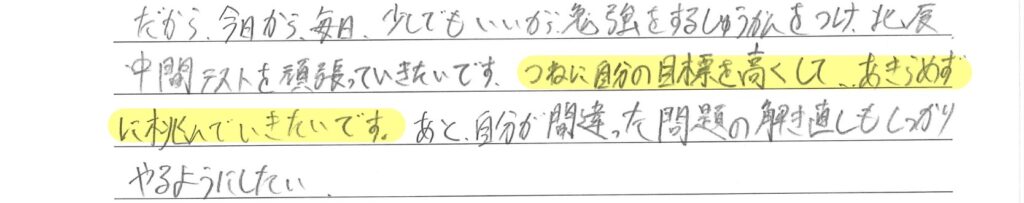 だから、今日から、毎日、少しでもいいから、勉強をするしゅうかんをつけ、北辰、
中間テストを頑張っていきたいです。つねに自分の目標を高くして、あきらめず
に挑んでいきたいです。あと、自分が間違った問題の解き直しもしっかり
やるようにしたい。